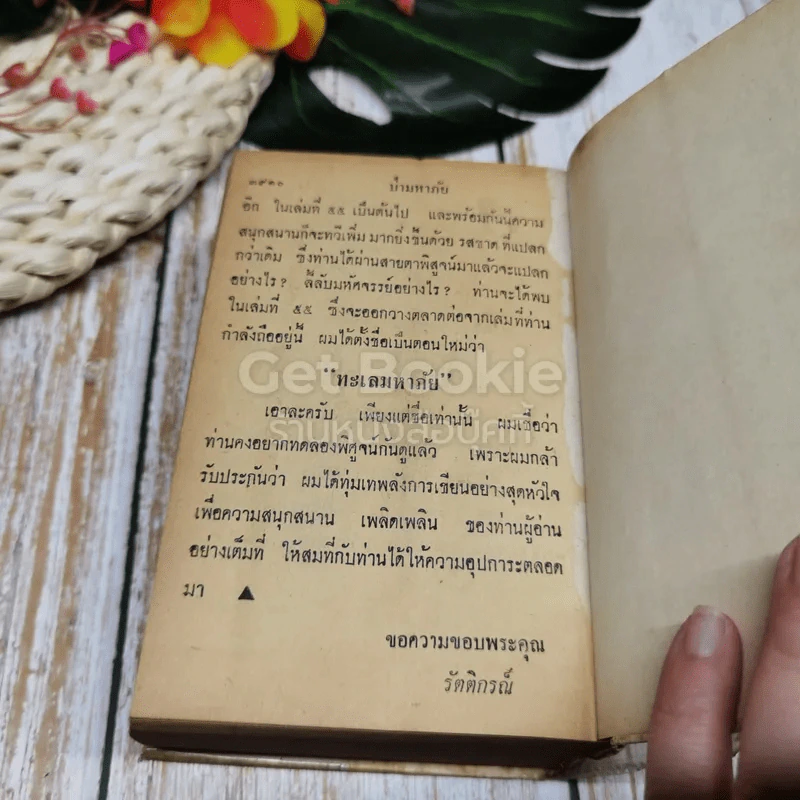 ป่ามหาภัย
อีก ในเล่มที่ ๕๕ เป็นต้นไป และพร้อมกันนี้ความ
สนุกสนานก็จะทวีเพิ่ม มากยิ่งขึ้นด้วย รสชาด ที่แปลก
กว่าเดิม ซึ่งท่านได้ผ่านสายตาพิสูจน์มาแล้วจะแปลก
อย่างไร? ลี้ลับมหัศจรรย์อย่างไร? ท่านจะได้พบ
ในเล่มที่ ๕๕ ซึ่งจะออกวางตลาดต่อจากเล่มที่ท่าน
กำลังถืออยู่นี้ ผมได้ตั้งชื่อเป็นตอนใหม่ว่า
"ทะเลมหาภัย"
Get Bookie
เอาละครับ เพียงแต่ชื่อเท่านั้น ผมเชื่อว่า
ร้านหนังสือบุ๊คกี้
ท่านคงอยากทดลองพิศูจน์กันดูแล้ว เพราะผมกล้า
รับประกันว่า ผมได้ทุ่มเทพลังการเขียนอย่างสุดหัวใจ
เพื่อความสนุกสนาน เพลิดเพลิน ของท่านผู้อ่าน
อย่างเต็มที่ ให้สมที่กับท่านได้ให้ความอุปการะตลอด
มา ▲
ขอความขอบพระคุณ
รัตติกรณ์